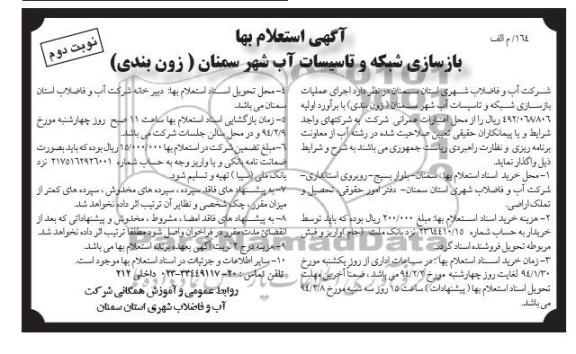 ۱۶۴/ م الف
آگهی استعلام بها
نوبت دوم
بازسازی شبکه و تاسیسات آب شهر سمنان ( زون بندی)
شـرکت آب و فاضلاب شـهری استان سـمنان در نظر دارد اجرای عملیات
بازسـازی شـبکه و تاسیسات آب شهر سـمنان (زون بندی) با برآورد اولیه
ریال را از محل اعتبارات عمرانی شرکت به شرکتهای واجد
شرایط و یا پیمانکاران حقیقی تعیین صلاحیت شده در رشته آب از معاونت
برنامه ریزی و نظارت راهبردی ریاست جمهوری می باشند به شرح و شرایط
ذیل واگذار نماید.
۱- محل خرید اسناد استعلام بها: سمنان- بلوار بسیج- روبروی استانداری-
شرکت آب و فاضلاب شهری استان سمنان- دفتر امور حقوقی، تحصیل و
تملک اراضی.
۲- هزینه خرید اسناد استعلام بها: مبلغ ۲۰۰/۰۰۰ ریال بوده که باید توسط
خریدار به حساب شماره نزد بانک ملت (جام) واریز و فیش
مربوطه تحویل فروشنده اسناد گردد.
۳- زمان خرید اسناد استعلام بها: در ساعات اداری از روز یکشنبه مورخ
۹۴/۱/۳۰ لغایت روز چهارشنبه مورخ ۹۴/۲/۲ می باشد، ضمناً آخرین مهلت
تحویل اسناد استعلام بها ( پیشنهادات ) ساعت ۱۵ روز سه شنبه مورخ ۹۴/۲/۸
می باشد.
۴- محل تحویل اسناد استعلام بها: دبیر خانه شرکت آب و فاضلاب استان
سمنان می باشد.
۵- زمان بازگشایی اسناد استعلام بها ساعت ۱۱ صبح روز چهارشنبه مورخ
۹۴/۲/۹ و در محل سالن جلسات شرکت می باشد.
۶- مبلغ تضمین شرکت در استعلام بها ۱۵/۰۰۰/۰۰۰ ریال بوده که باید بصورت
ضمانت نامه بانکی و یا واریز وجه به حساب شماره ۲۱۷۵۱۶۲۹۲۶۰۰۱ نزد
بانک ملی (سیبا) تهیه و تسلیم شود.
۷- به پیشنهاد های فاقد سپرده ، سپرده های مخدوش ، سپرده های کمتر از
میزان مقرر، چک شخصی و نظایر آن ترتیب اثر داده نخواهد شد.
۸- به پیشنهاد های فاقد امضا ، مشروط ، مخدوش و پیشنهاداتی که بعد از
انقضای مدت مقرر در فراخوان واصل شود مطلقاً ترتیب اثر داده نخواهد شد.
۹- هزینه درج ۲ نوبت آگهی بعهده برنده استعلام بها می باشد.
۱۰- سایر اطلاعات و جزئیات در اسناد استعلام بها موجود است.
تلفن تماس : ۲۰-۳۳۴۴۹۱۱۷-۰۲۳ داخلی ۲۱۲
روابط عمومی و آموزش همگانی شرکت
آب و فاضلاب شهری استان سمنان